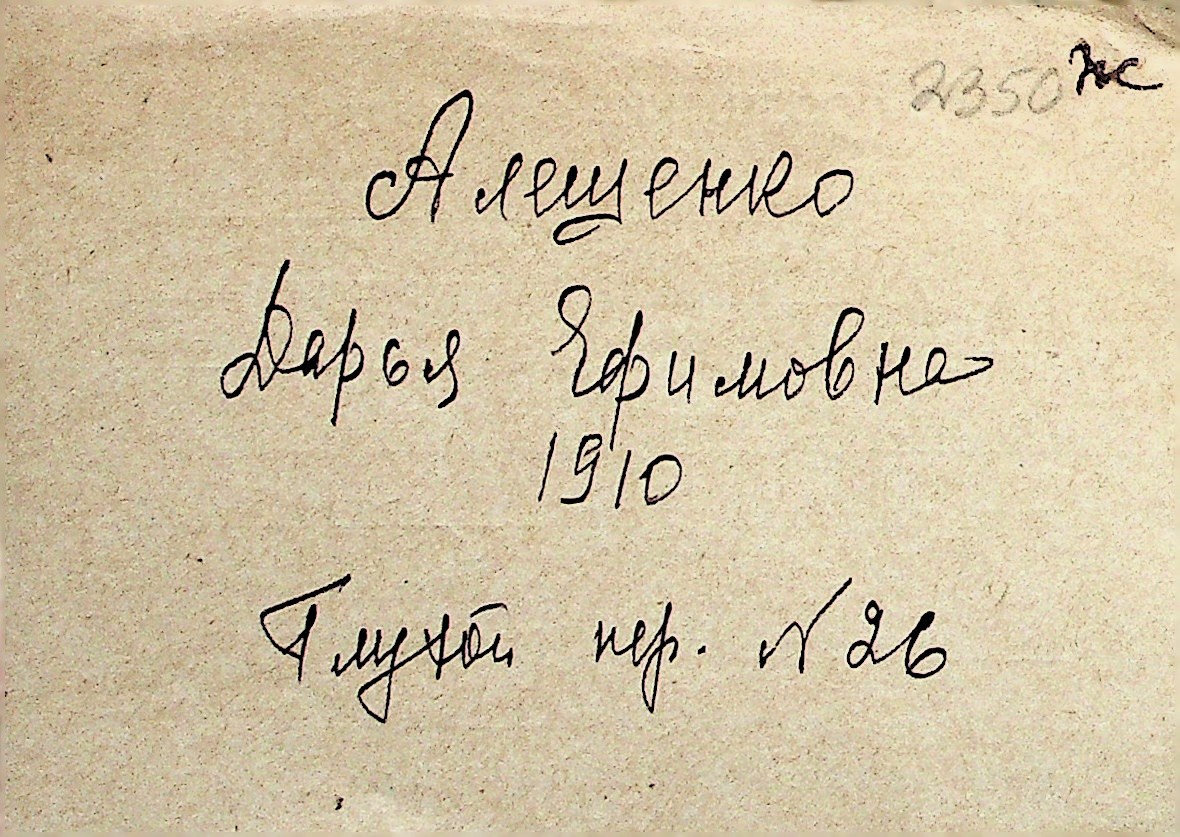 2350 ж
Алещенко
Дарья Ефимовна
1910
Глухой пер. N 26